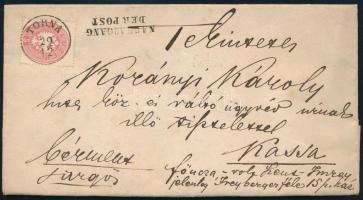 TORNA
30
12
NACH ABGANG
DER POST
Tekintetes
Korányi Károly
hites köz- és váltó ügyvéd úrnak
illő tisztelettel
Kassa
Bérmentve
Sürgős
főucza
jelenleg Freybergerféle 15